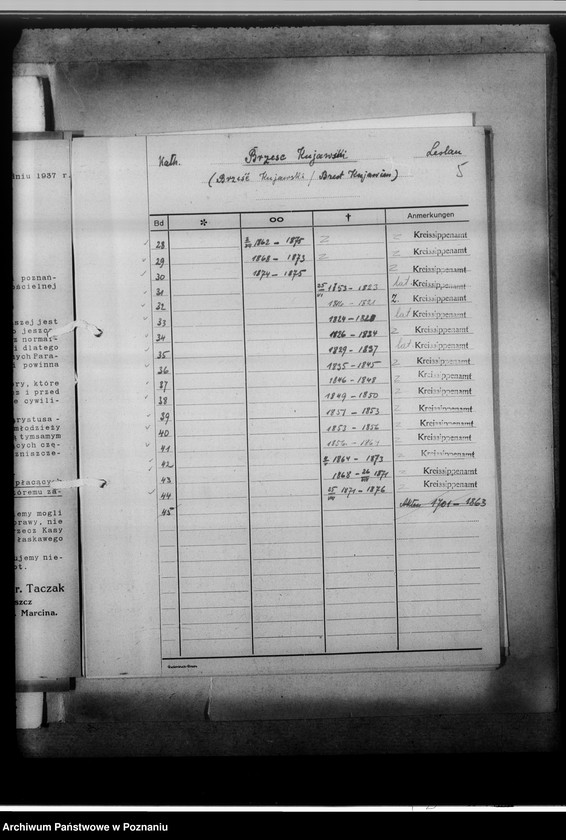 dniu 1937 r.
poznan-
ościelnej
szej jest
o jeszcze
z normar-
i dlatego
ych Para-
i powinna
ry, które
z i przed
e cywili-
rystusa -
młodzieży
ą tymsamym
ących czę-
zniszcze-
płacących
óremu za-
emy mogli
prawy, nie
rzecz Kasy
łaskawego
ujemy nie-
ot.
r. Taczak
szcz
. Marcina.
Kath. Brzesc Kujawski Leslau
(Brześć Kujawski / Brest Kujawien) 5
Bd * oo † Anmerkungen
28 1862 - 1875 z Kreissippenamt
29 1868 - 1873 z Kreissippenamt
30 1874 - 1875 z Kreissippenamt
31 1823 lat. Kreissippenamt
32 z Kreissippenamt
33 1824 - lat Kreissippenamt
34 1826 - 1834 z Kreissippenamt
35 1829 - 1837 lat Kreissippenamt
36 1835 - 1845 z Kreissippenamt
37 1846 - 1848 z Kreissippenamt
38 1849 - 1850 z Kreissippenamt
39 1851 - 1853 z Kreissippenamt
40 1853 - 1856 z Kreissippenamt
41 1856 - z Kreissippenamt
42 1864 - 1873 z Kreissippenamt
43 1868 - 1871 z Kreissippenamt
44 1871 - 1876 z Kreissippenamt
45 Akten 1701 - 1863
Archiwum Państwowe w Poznaniu